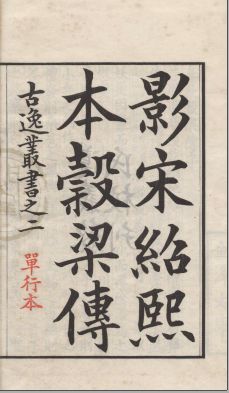 影宋紹熙
本穀梁傳
古逸叢書之二
單行本